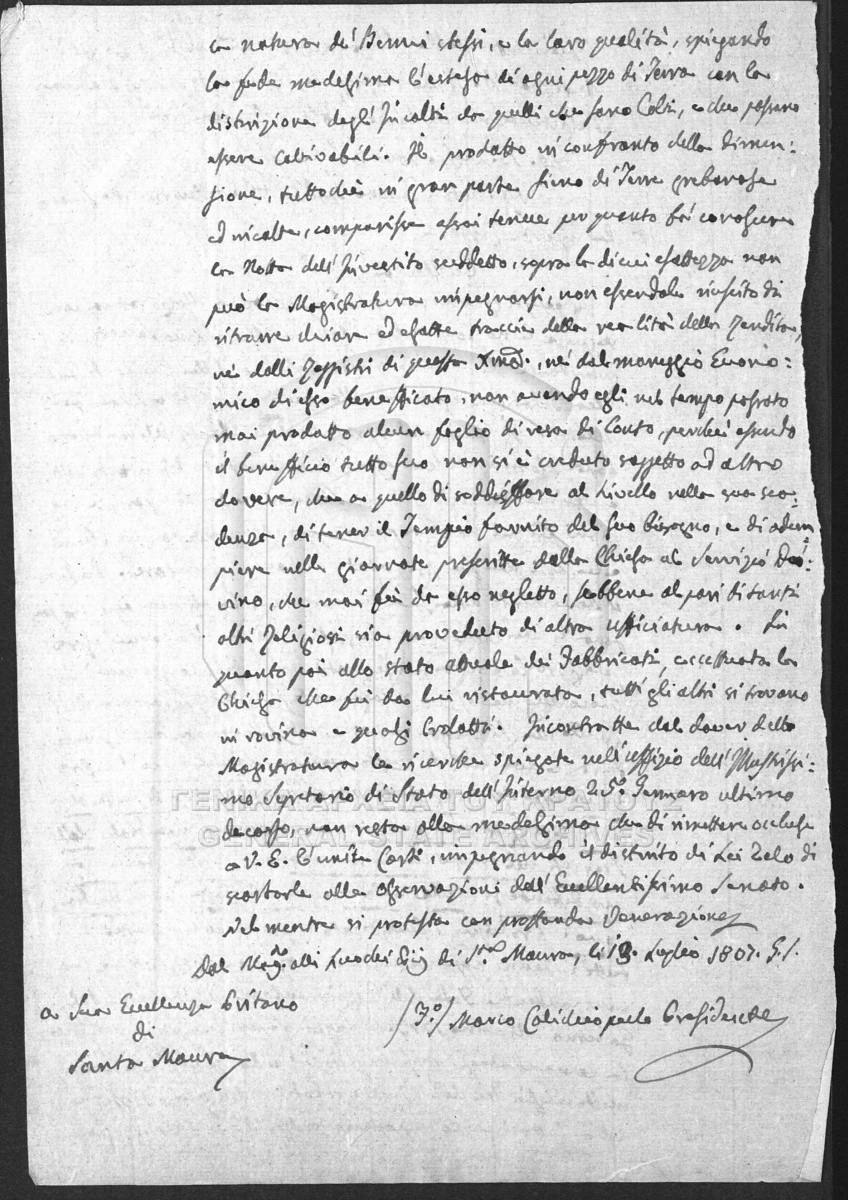 la natura de' Benni stessi, e la loro qualità, spiegando
la fede medesima l'estesa di ogni pezzo di Terra con la
distinzione degl'Incolti da quelli che sono Colti, e che possano
essere coltivabili. Il prodotto in confronto della dimen:
sione, tuttochè in gran parte siano di Terre grebanose
ed incolte, comparisse assai tenue per quanto fà conoscere
la Notta dell'Investito suddetto, sopra la di cui esattezza non
può la Magistratura impegnarsi, non essendole riuscito di
ritrarre chiare ed esatte traccie della realità della Rendita,
nè dalli Reggistri di questa, nè dal maneggio Econo:
mico di esso benefficato, non avendo egli nel tempo passato
mai prodotto alcun foglio di resa di Conto, perchè essendo
il benefficio tutto suo non si è creduto soggetto ad altro
dovere, che a quello di soddisffare al Livello nella sua sca:
denza, di tener il Tempio fornito del suo bisogno, e di adem:
piere nelle giornate prescritte dalla Chiesa al Servizio Di:
vino, che mai fù da esso negletto, sebbene al pari di tanti
altri Religiosi sia proveduto di altra ufficiatura. In
quanto poi allo stato attuale de' Fabbricati, eccettuata la
Chiesa che fù da lui ristaurata, tutti gli altri si trovano
in rovina e quasi Crolatti. Incontratte dal dover della
Magistratura le ricerche spiegate nell'uffizio dell'Illustrissi:
mo Segretario di Stato dell'Interno 25.º Gennaro ultimo
decorso, non resta alla medesima che di rimettere occluse
a V. E. l'unite Carte, impegnando il distinto di Lei Zelo di
scortarle alle osservazioni dell'Eccellentissimo Senato.
Nel mentre si protesta con proffonda Venerazione
Dal Mag.to alli Luochi Pij di S.ta Maura, li 13. Luglio 1807. S. V.
a Sua Eccellenza Pritano
di
Santa Maura
/F.º/ Marco Calichiopulo Presidente
ΓΕΝΙΚΑ ΑΡΧΕΙΑ ΤΟΥ ΚΡΑΤΟΥΣ
GENERAL STATE ARCHIVES